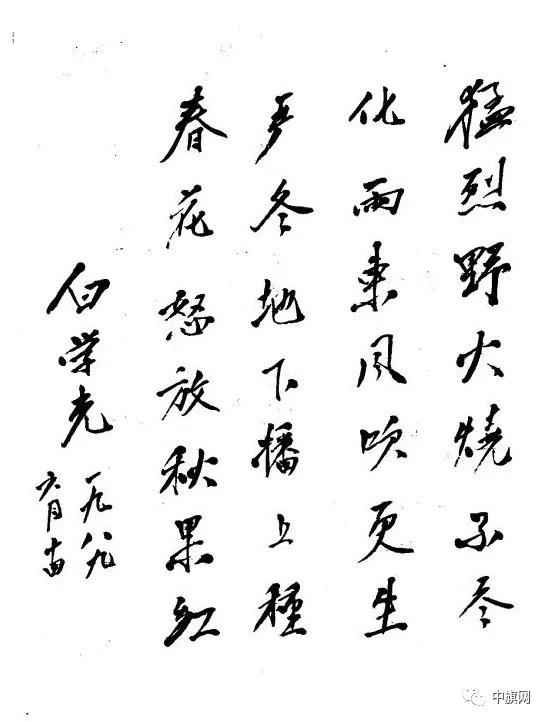 猛烈野火燒不尽
化雨東风吹更生
严冬地下播上種
春花怒放秋果红
白学光
一九八九
六月
中旗网